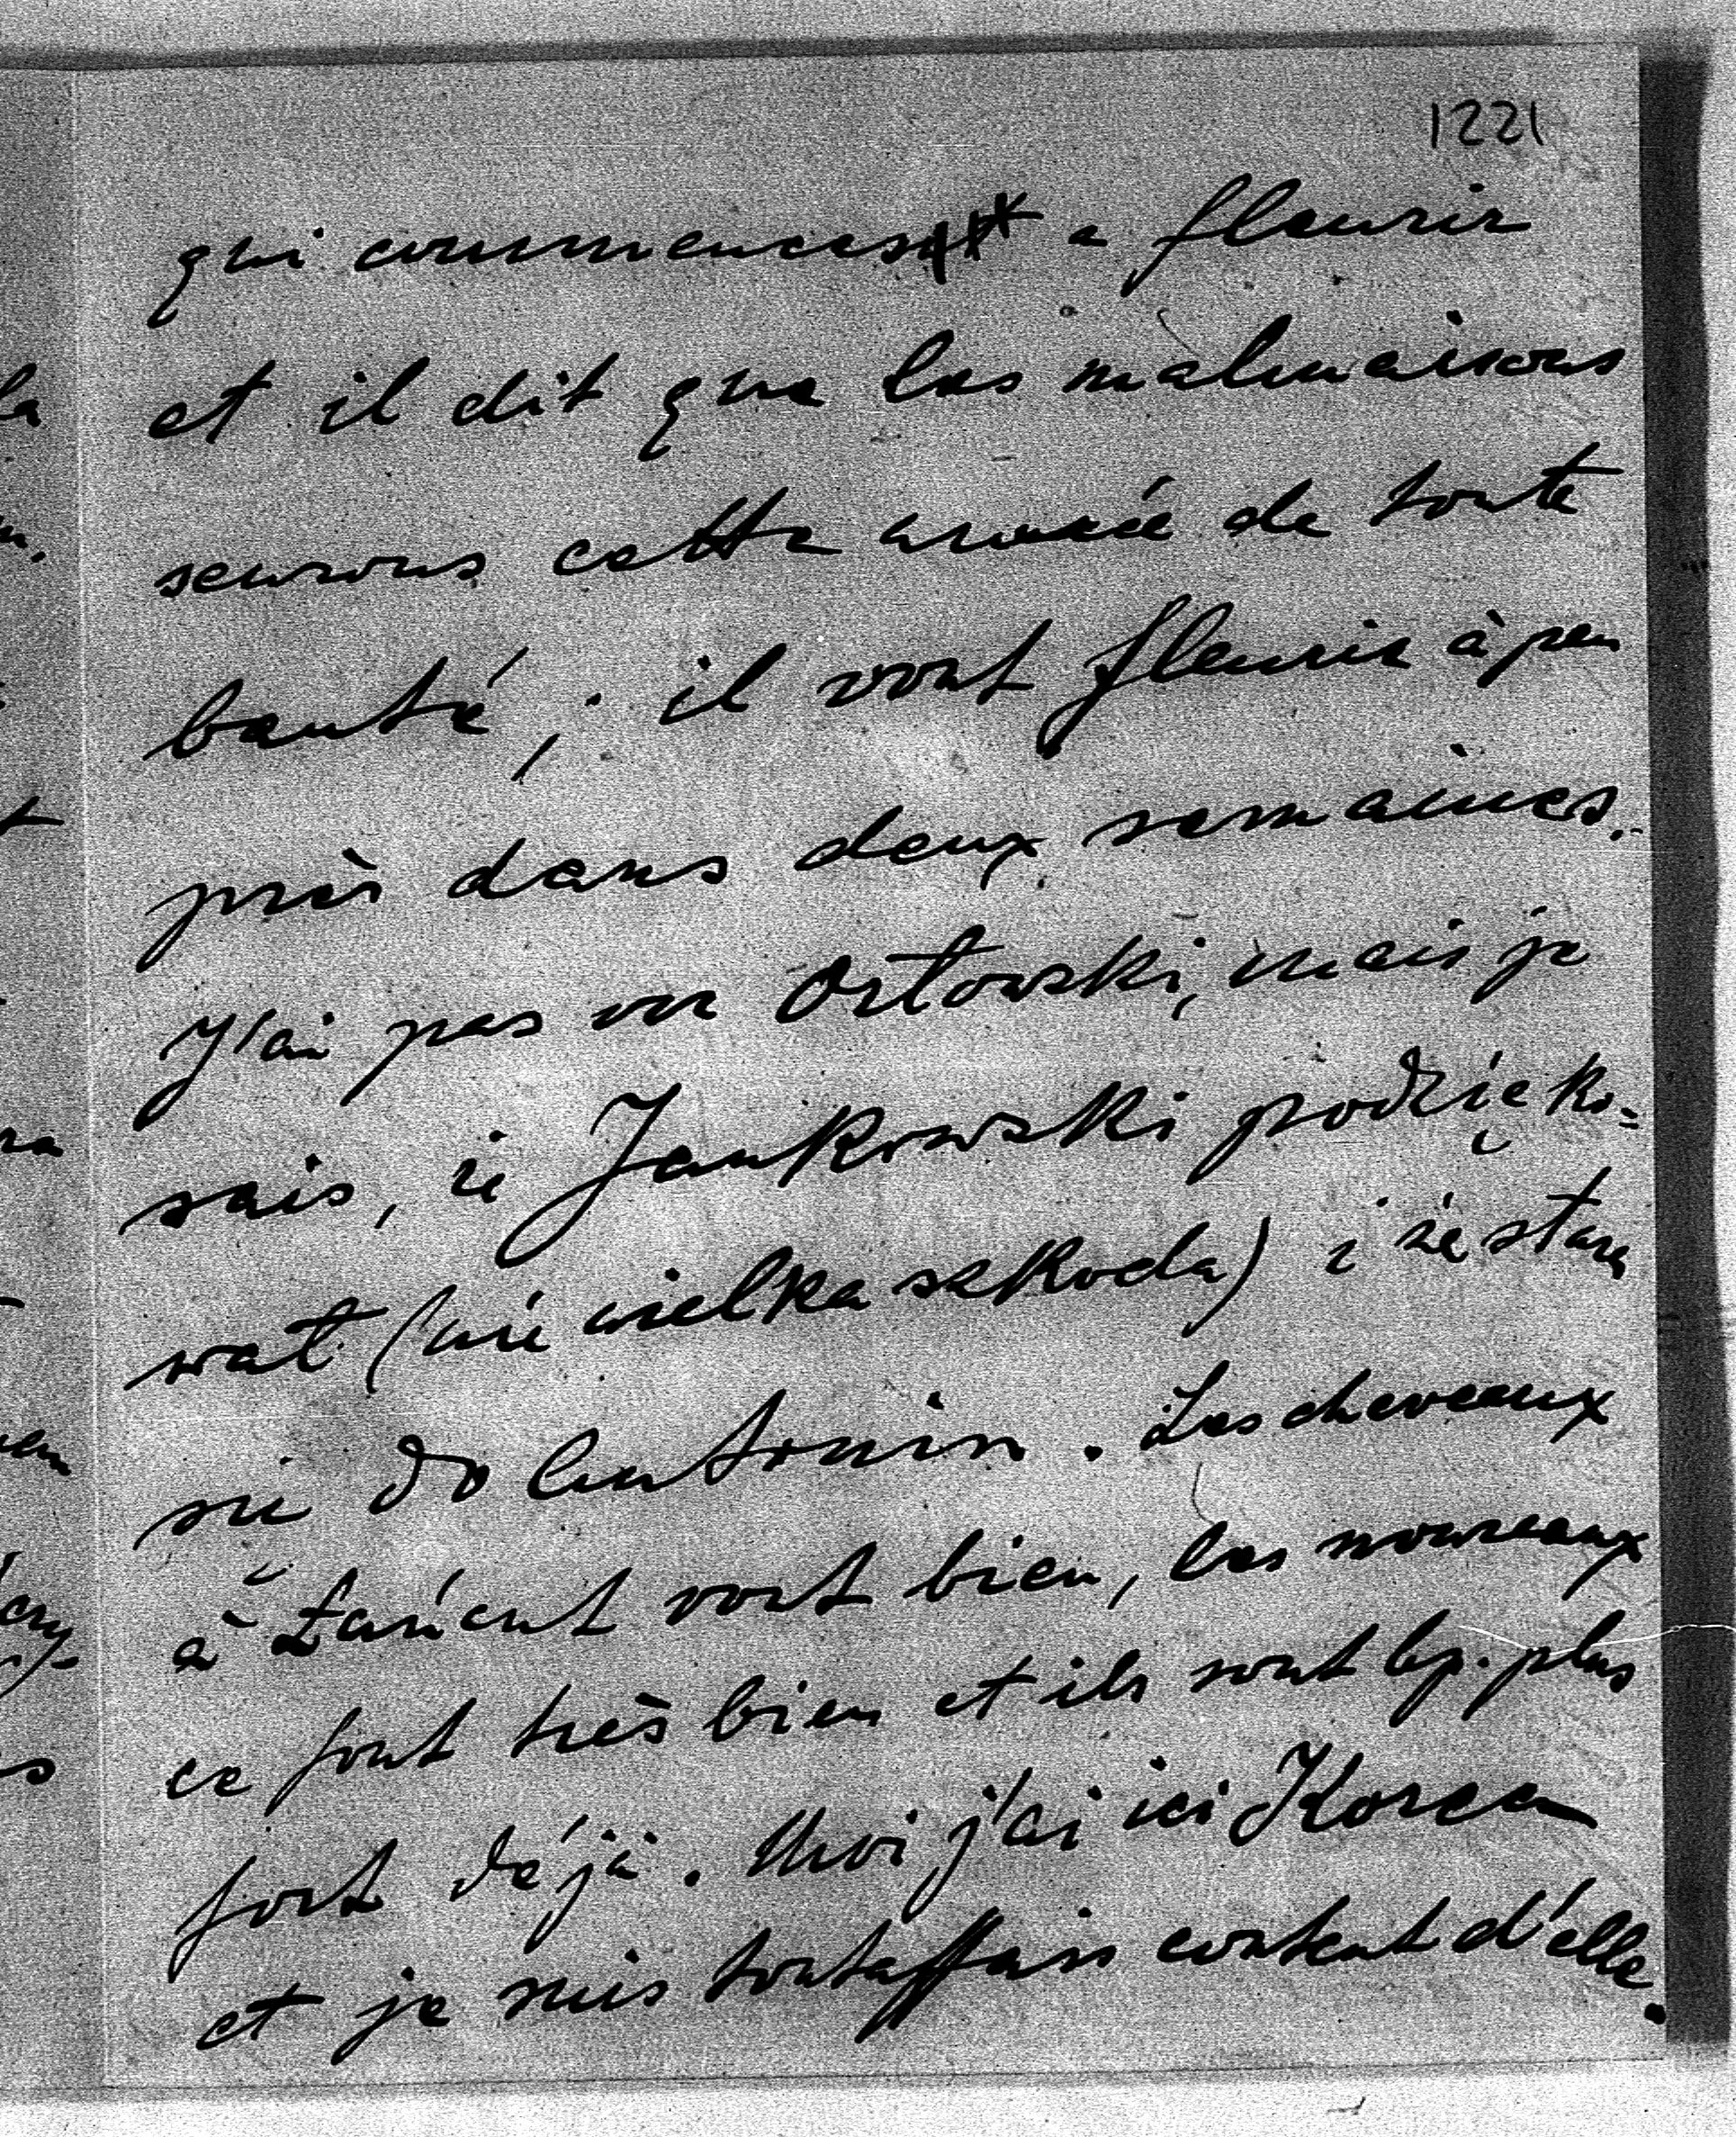 1221
qui commencent a fleurir
et il dit que les malmaisons
seurons cette année de toute
bauté; il vont fleurir à peu
près dans deux semaines.
J'ai pas vu Orłowski, mais je
sais, że Jankowski podzięko-
wał (nie wielka szkoda) i że stara
się do Antonin. Les cheveaux
à Łańcut vont bien, les nouveaux
ce font très bien et ils sont bp. plus
fort déjà. Moi j'ai ici Korea
et je suis toutaffais content d'elle.